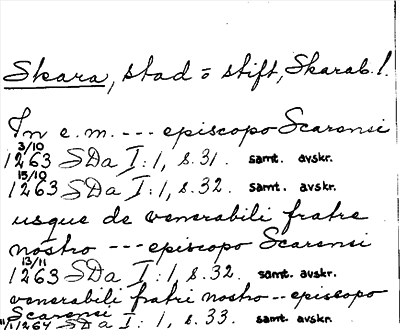 Skara, stad o stift, Skarab. l.
In e.m. --- episcopo Scarensi
3/10
1263 SDa I:1, s.31. samt. avskr.
15/10
1263 SDa I:1, s.32. samt. avskr.
usque de venerabili fratre
nostro --- episcopo Scarensi
13/11
1263 SDa I:1, s.32. samt. avskr.
venerabili fratri nostro -- episcopo
Scarensi
1264 SDa I:1, s.33. samt. avskr.